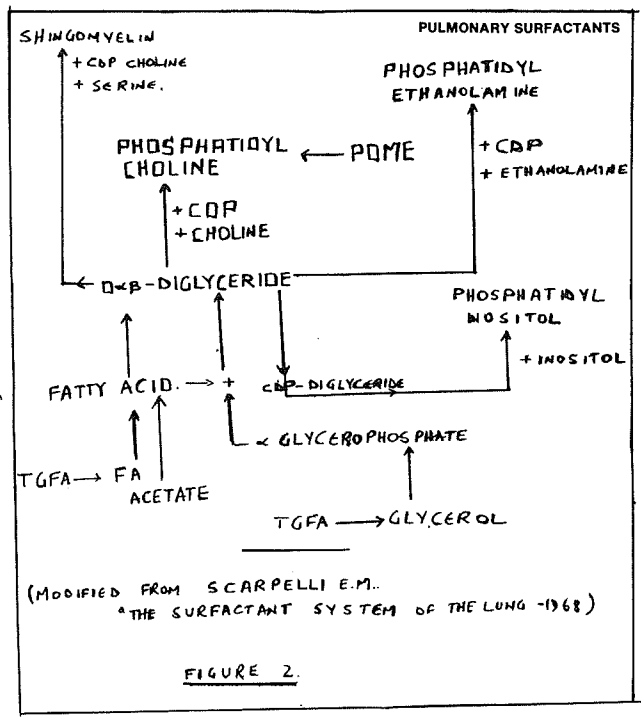 PULMONARY SURFACTANTS
SHINGOMYELIN
+ CDP CHOLINE
+ SERINE.
PHOSPHATIDYL
ETHANOLAMINE
PHOSPHATIDYL
CHOLINE
PDME
+ CDP
+ ETHANOLAMINE
+ CDP
+ CHOLINE
D∝β-DIGLYCERIDE
PHOSPHATIDYL
INOSITOL
+ INOSITOL
FATTY ACID. → +
CDP-DIGLYCERIDE
∝ GLYCEROPHOSPHATE
TGFA → FA
ACETATE
TGFA → GLYCEROL
(MODIFIED FROM SCARPELLI E.M..
"THE SURFACTANT SYSTEM OF THE LUNG -1968)
FIGURE 2.